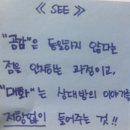 《 SEE 》
"공감"은 동일하지 않다는
점을 인정하는 과정이고,
"대화"는 상대방의 이야기를
제한없이 들어주는 것!!